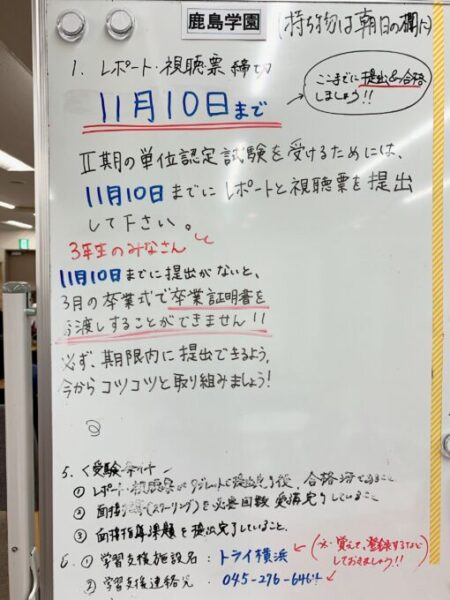 鹿島学園
(持ち物は朝日の欄に)
1. レポート・視聴票 締切
11月10日まで
ここまでに提出&合格
しましょう!!
Ⅱ期の単位認定試験を受けるためには、
11月10日までにレポートと視聴票を提出
して下さい。
3年生のみなさん
11月10日までに提出がないと、
3月の卒業式で卒業証明書を
お渡しすることができません!!
必ず、期限内に提出できるよう、
今からコツコツと取り組みましょう!
5. <受験条件
① レポート・視聴票がタブレットで提出完了後、合格済であること
② 面接指導(スクーリング)を必要回数受講完了していること
③ 面接指導課題を提出完了していること。
6. ① 学習支援施設名: トライ横浜
(※覚えて、登録するなど
しておきましょう!!)
② 学習支援連絡先: 045-276-6464